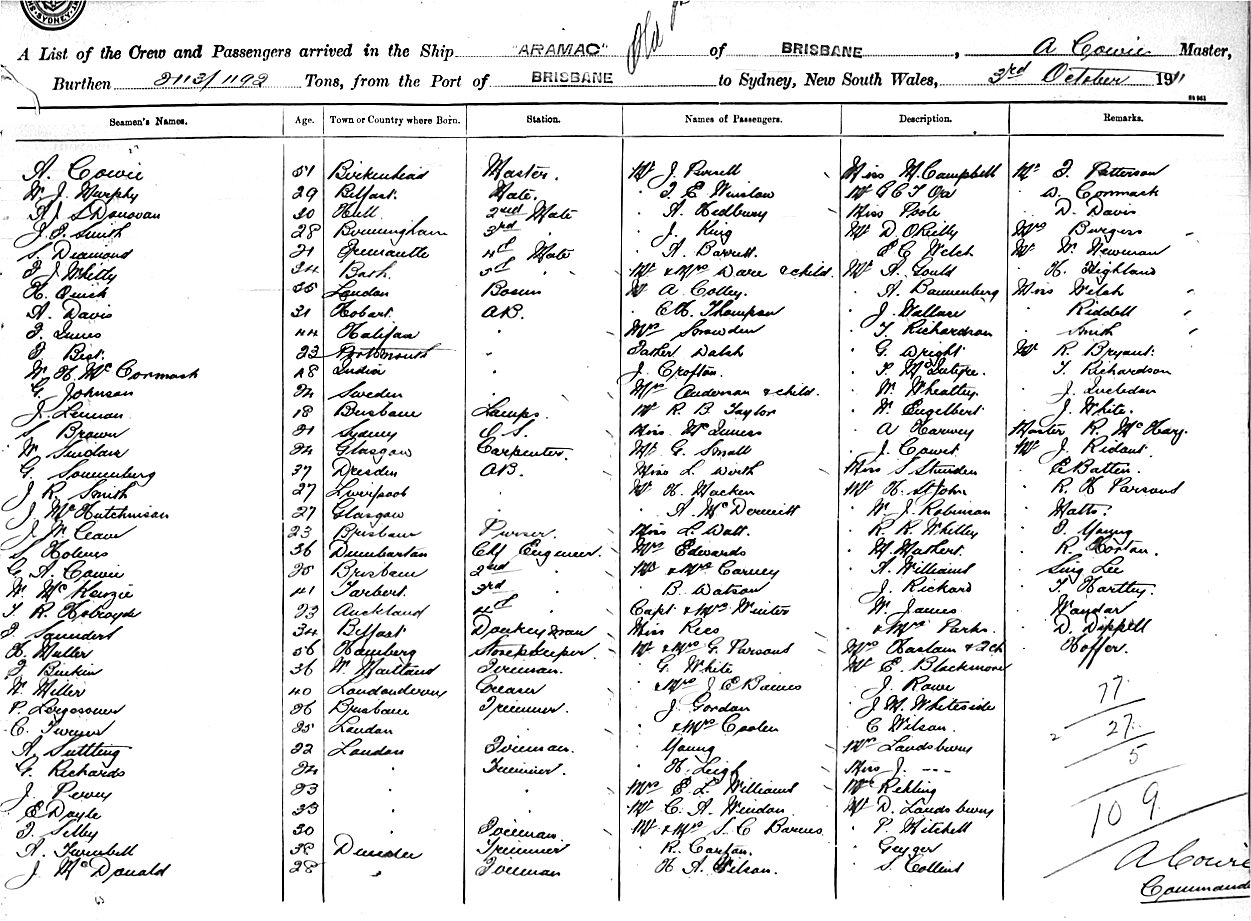 SYDNEY
Old
A List of the Crew and Passengers arrived in the Ship "ARAMAC" of BRISBANE, A Cowie Master,
Burthen 2113/1192 Tons, from the Port of BRISBANE to Sydney, New South Wales, 3rd October 1911
Seamen's Names. Age. Town or Country where Born. Station. Names of Passengers. Description. Remarks.
A. Cowie 51 Birkenhead Master. Mr J. Purcell Miss M. Campbell Mr J. Patterson
W. J. Murphy 29 Belfast. Mate. " F. E. Winslow Mr G C T Orr " D. Cormack
A. J. S Donovan 30 Hull 2nd Mate " A. Hedbury Miss Poole " D. Davis
J. F. Smith 28 Birmingham 3rd " J. King Mr D. O'Reilly Mrs Burgess
S. Diamond 21 Fremantle 4th Mate " A. Barrett. " E C Welch Mr W. Newman
F. J. Whitty 24 Bath. 5th " Mr & Mrs Dare & child. Mr A. Gould " H. Highland
H. Quick 35 London Bosun Mr A. Colley. " A. Bannenberg Miss Welsh
A. Davis 31 Hobart. AB. " C H. Thompson " J. Wallace " Riddell
F. Innes 44 Halifax " Mrs Snowden " T. Richardson " Smith
F. Best. 23 Portsmouth " Father Walsh " G. Wright Mr R. Bryant.
W. H. McCormack 48 India " J. Crofton. " P. McIntyre. " T. Richardson
G. Johnson 24 Sweden " Mrs Anderson & child. " W. Wheatley. " J. Incledon
J. Lennan 18 Brisbane Lamps. Mr R. B. Taylor " W. Engelbert " J. White.
S. Brown 21 Sydney O.S. Miss McInnes " A Harvey Master R. McKay.
W. Sinclair 24 Glasgow Carpenter. Mr G. Small " J. Court Mr J. Ridant.
G. Sonnenberg 37 Dresden AB. Miss L. Worth Miss S Sheirden " E Batten.
J. R. Smith 27 Liverpool " Mr H. Macken Mr H. St John " R. H Parsons
J. McHutchinson 27 Glasgow " " A. McDermott " W. J. Robinson " Watts.
J. W. Cearn 23 Brisbane Purser. Miss L. Watt. " R. R. Whitley " F. Young
S. Holmes 36 Dumbarton Chf Engineer. Mrs Edwards " M. Mashert. " R. Horton.
G. A. Cowie 25 Brisbane 2nd " Mr & Mrs Carney " A. Williams " Sing Lee
W. McKenzie 41 Tarbert. 3rd " " B. Watson " J. Rickard " T. Hartley.
T. R. Holroyde 23 Auckland 4th " Capt & Mrs Winter " W. James " Wandar
F. Saunders 34 Belfast Donkeyman Miss Rees " & Mrs Parks. " D. Dippell
H. Muller 56 Hamberg Storekeeper. Mr & Mrs G. Parsons Mrs Haslam & 2ch " Hoffer.
F. Binkin 36 W. Maitland Fireman. " G. White Mr E. Blackmore
W. Miller 40 Londonderry Greaser " & Mrs J. E Baines " J. Rowe
P. Lorgossner 26 Brisbane Trimmer. " J. Gordon " J. M. Whiteside
C. Turner 25 London " " & Mrs Coolen " C Wilson.
A. Suttling 22 London Fireman. " Young Mrs Landsbury
G. Richards 24 " Trimmer. " H. Leigh Miss J. ---
J. Perry 23 " " Mrs E. L. Williams Mr Rehling
E Doyle 33 " " Mr C. A. Windon Mr D. Landsbury
F. Selby 30 " Fireman. Mr & Mrs S. C Barnes " P. Mitchell
A. Turnbell 38 Dundee Trimmer " R. Carton. " Geyger
J. McDonald 28 " Fireman " H A. Wilson. " S. Collins
77
27
2
5
109
A Cowie
Commande